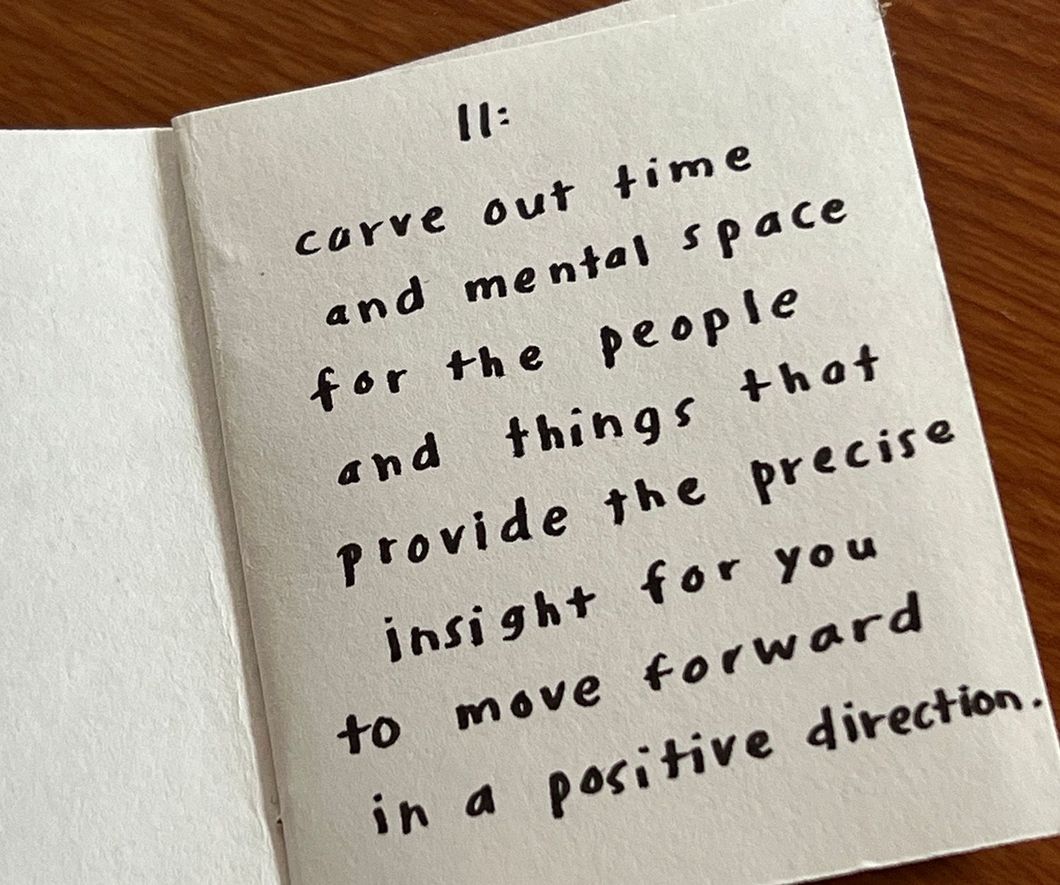 11:
carve out time
and mental space
for the people
and things that
provide the precise
insight for you
to move forward
in a positive direction.